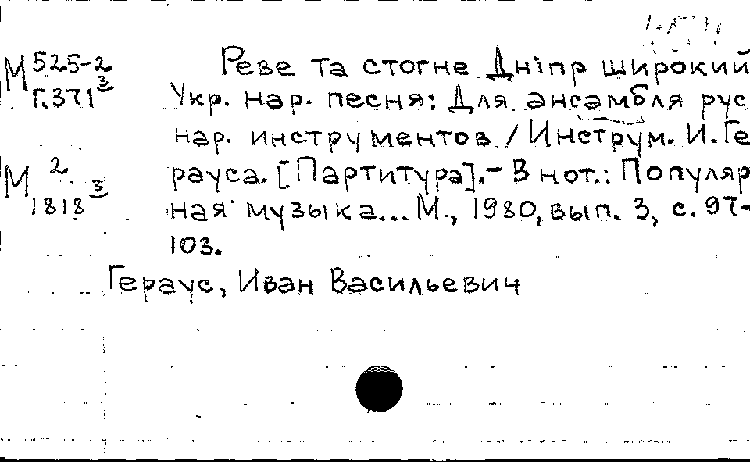 М 525-2/Г.371 3
Реве та стогне Дніпр широкий
Укр. нар. песня: Для ансамбля рус
нар. инструментов / Инструм. И. Ге
М 2/1818 3
рауса. [Партитура].- В нот.: Популяр
ная музыка... М., 1980, вып. 3, с. 97-
103.
Гераус, Иван Васильевич